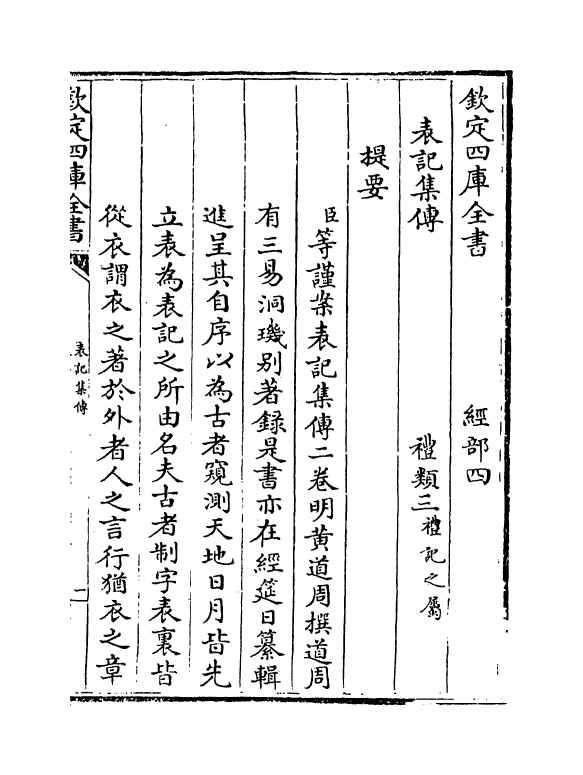 欽定四庫全書　經部四
表記集傳　禮類三禮記之屬
提要
臣等謹案表記集傳二卷明黄道周撰道周
有三易洞璣别著録是書亦在經筵日纂輯
進呈其自序以為古者窺測天地日月皆先
立表為表記之所由名夫古者制字表裏皆
從衣謂衣之著於外者人之言行猶衣之章
欽定四庫全書
表記集傳
二